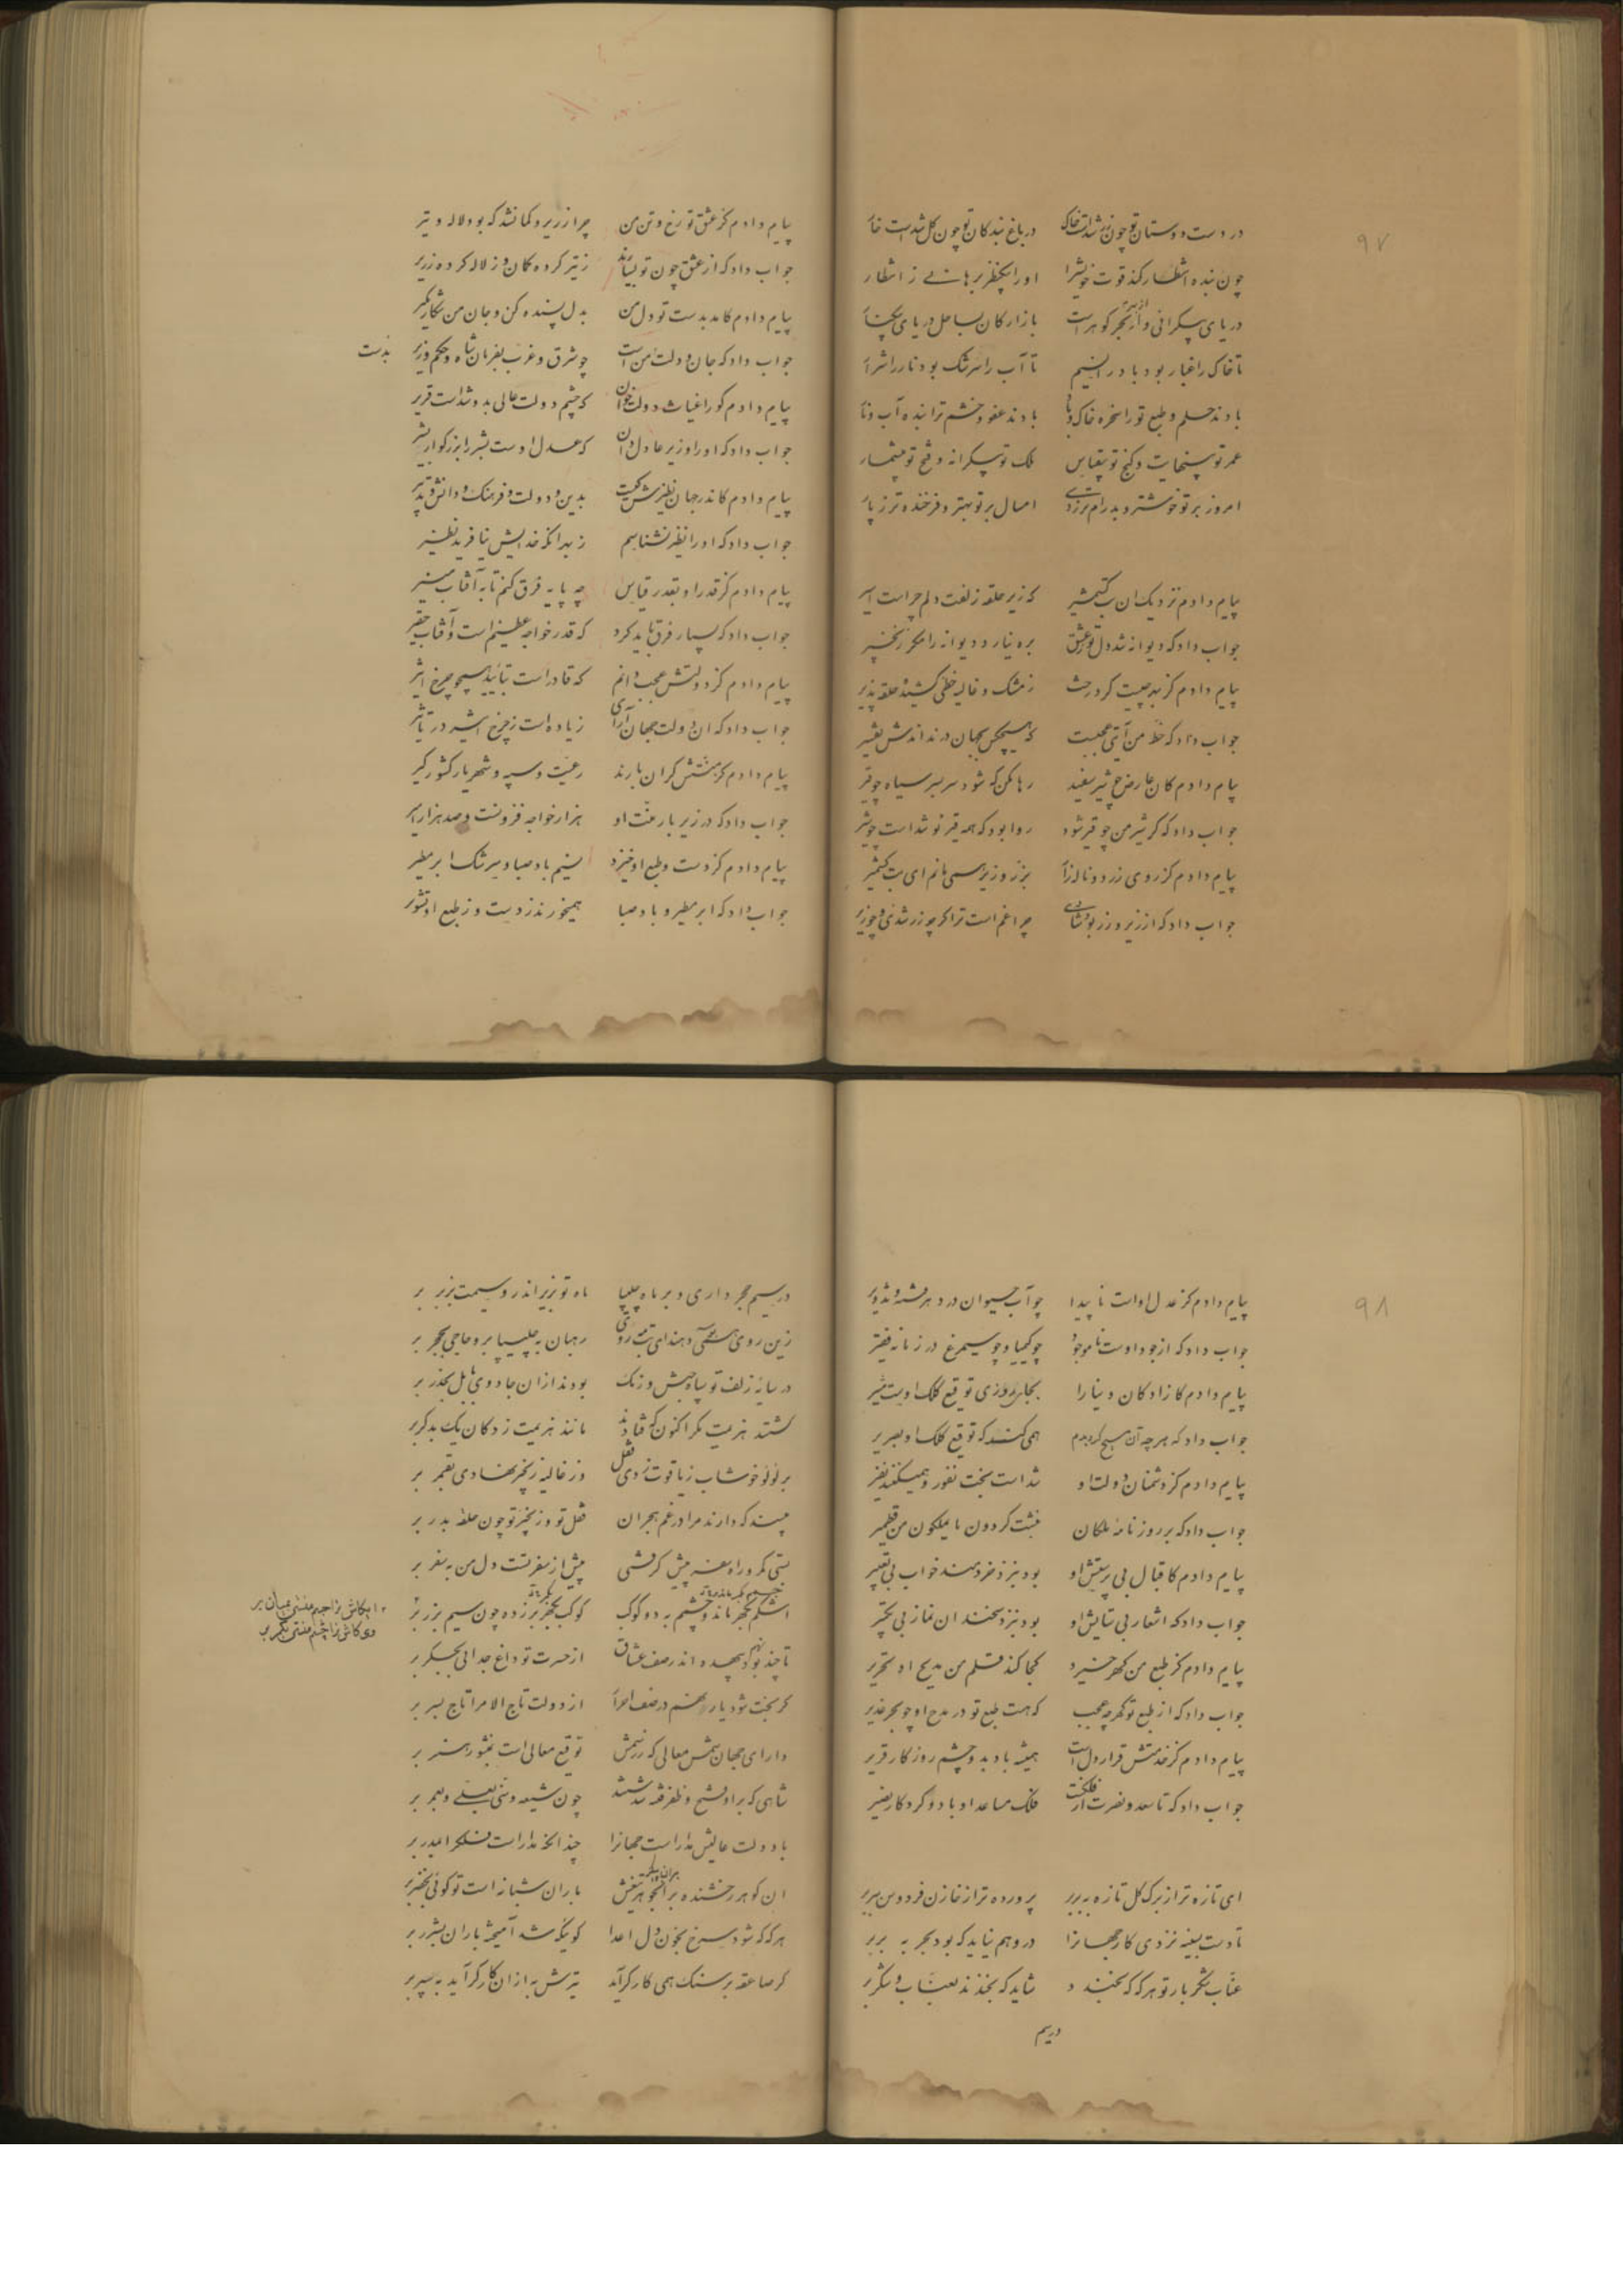 ۹۷
در دست دوستان تو چون زر شداست خاک    در باغ بندگان تو چون گل شداست خار
چون بنده انتظار کند قوت خویش را    او را بکف ز انتظار
دریای بیکرانی و گوهر است    بازارگان بساحل دریای
تا خاک را غبار بود باد را نسیم    تا آب را سرشک بود نار را شرار
بادند حلم و طبع تو را سخره خاک و باد    بادند عفو و خشم ترا بنده آب و نار
عمر تو بینهایت و گنج تو بیقیاس    ملک تو بیکرانه و فتح تو بیشمار
امروز بر تو خوشتر و پدرام تر ز دی    امسال بر تو بهتر و فرخنده تر ز پار
پیام دادم نزدیک آن بت کشمیر    که زیر حلقه زلفت دلم چراست اسیر
جواب داد که دیوانه شد دل تو ز عشق    بره نیارد دیوانه را مگر زنجیر
پیام دادم کز بهر چیست گرد رخت    ز مشک و غالیه خطی کشیده حلقه پذیر
جواب داد که خط من آیتی عجبست    که هیچکس بجهان در نداندش تفسیر
پیام دادم کان عارض چو شیر سفید    رها مکن که شود سربسر سیاه چو قیر
جواب داد که گر شیر من چو قیر شود    روا بود که همه قیر تو شداست چو شیر
پیام دادم کز روی زرد و ناله زار    بزر و زیر همی مانم ای بت کشمیر
جواب داد که از زیر و زر بود شادی    چرا غم است ترا گر چو زر شدی و چو زیر
پیام دادم کز عشق تو رخ و تن من    چرا زریر و کمان شد که بود لاله و تیر
جواب داد که از عشق چون تو بسیارند    ز تیر کرده کمان و ز لاله کرده زریر
پیام دادم کامد بدست تو دل من    بدل بسنده کن و جان من شکار مگیر
جواب داد که جان و دلت من است    چو شرق و غرب بفرمان شاه و حکم وزیر    بدست
پیام دادم کو را غیاث دولت خوان    که چشم دولت عالی بدو شداست قریر
جواب داد که او را وزیر عادل دان    که عدل اوست بشر را بزرگوار بشیر
پیام دادم کاندر جهان نظیرش کیست    بدین و دولت و فرهنگ و دانش و تدبیر
جواب داد که او را نظیر نشناسم    زبهر آنکه خدایش نیافرید نظیر
پیام دادم کز قدر او بقدر قیاس    چه پایه فرق کنم تا به آفتاب منیر
جواب داد که بسیار فرق باید کرد    که قدر خواجه عظیم است و آفتاب حقیر
پیام دادم کز دولتش عجب دانم    که قادر است بتأیید همچو چرخ اثیر
جواب داد که آن دولت جهان آرای    زیاده است ز چرخ اثیر در تأثیر
پیام دادم کز منتش گران بارند    رعیت و سپه و شهریار کشورگیر
جواب داد که در زیر بار منت او    هزار خواجه فزونست و صد هزار امیر
پیام دادم کز دست و طبع او خیزد    نسیم باد صبا و سرشک ابر مطیر
جواب داد که ابر مطیر و باد صبا    همیخورند ز دست و ز طبع او تشویر
۹۸
پیام دادم کز عدل او است ناپیدا    چو آب حیوان در دهر فتنه و تزویر
جواب داد که از جود اوست ناموجود    چو کیمیا و چو سیمرغ در زمانه فقیر
پیام دادم کازادگان دنیا را    بجای روزی توقیع کلک اوست مشیر
جواب داد که هر چه آن مسیح کرد بدم    همی کنند که توقیع کلک او بصریر
پیام دادم کز دشمنان دولت او    شداست بخت نفور و همیکند نفیر
جواب داد که بر روزنامه ملکان    نبشت گردون ما یملکون من قطمیر
پیام دادم کاقبال بی پرستش او    بود بنزد خردمند خواب بی تعبیر
جواب داد که اشعار بی ستایش او    بود بنزد سخندان نماز بی تکبیر
پیام دادم کز طبع من گهر خیزد    کجا کند قلم من مدیح او تحریر
جواب داد که از طبع تو گهر چه عجب    که هست طبع تو در مدح او چو بحر غدیر
پیام دادم کز خدمتش قرار دل است    همیشه باد بدو چشم روزگار قریر
جواب داد که تا سعد و نصرت از فلکست    فلک مساعد او باد و کردگار نصیر
ای تازه تر از برگ گل تازه به بر بر    پرورده ترا خازن فردوس ببر بر
تا دست بیغ نزدی کار جهان را    در وهم نیاید که بود بحر به بر بر
عناب شکر بار تو هرگه که بخندد    شاید که بخندند بعناب و شکر بر
در سیم
در سیم حجر داری و بر ماه چلیپا    ماه تو بزیر اندر و سیمت بزبر بر
زین روی همی آیند ای بت روی    رهبان به چلیپا بر و حاجی بحجر بر
در سایه زلف تو سپاه حبش و زنگ    بودند از آن جادوی بابل بحذر بر
گشتند هزیمت مگر اکنون که فتادند    مانند هزیمت زدگان یک بدگر بر
بر لولو خوشاب ز یاقوت زدی قفل    وز غالیه زنجیر نهادی بقمر بر
مپسند که دارند مرا در غم هجران    قفل تو و زنجیر تو چون حلقه بدر بر
بستی کمر و راه سفر پیش گرفتی    پیش از سفر تست دل من به سفر بر
اشکم بگهر ماند و چشم به دو کوکب    کوکب بگهر بر زده چون سیم بزر بر
ایکاش ترا جسم منستی بمیان بر
وی کاش ترا چشم منستی بکمر بر
تا چند بوم بیهده اندر صف عشاق    از حسرت تو داغ جدائی بجگر بر
گر بخت شود یار نهم در صف احرار    از دولت تاج الامرا تاج بسر بر
دارای جهان شمس معالی که ز رسمش    توقیع معالی است بمنشور هنر بر
شاهی که بر او فتح و ظفر فتنه شدستند    چون شیعه و سنی بعلی و بعمر بر
با دولت عالیش مدار است جهان را    چندانکه مدار است فلک را بمدر بر
آن گوهر رخشنده بر تیغش    باران شبانه است تو گوئی بخضر بر
هرگه که شود سرخ بخون دل اعدا    گوئیکه شد آمیخته باران بشرر بر
گر صاعقه بر سنگ همی کارگر آید    تیرش به از آن کارگر آید به سپر بر